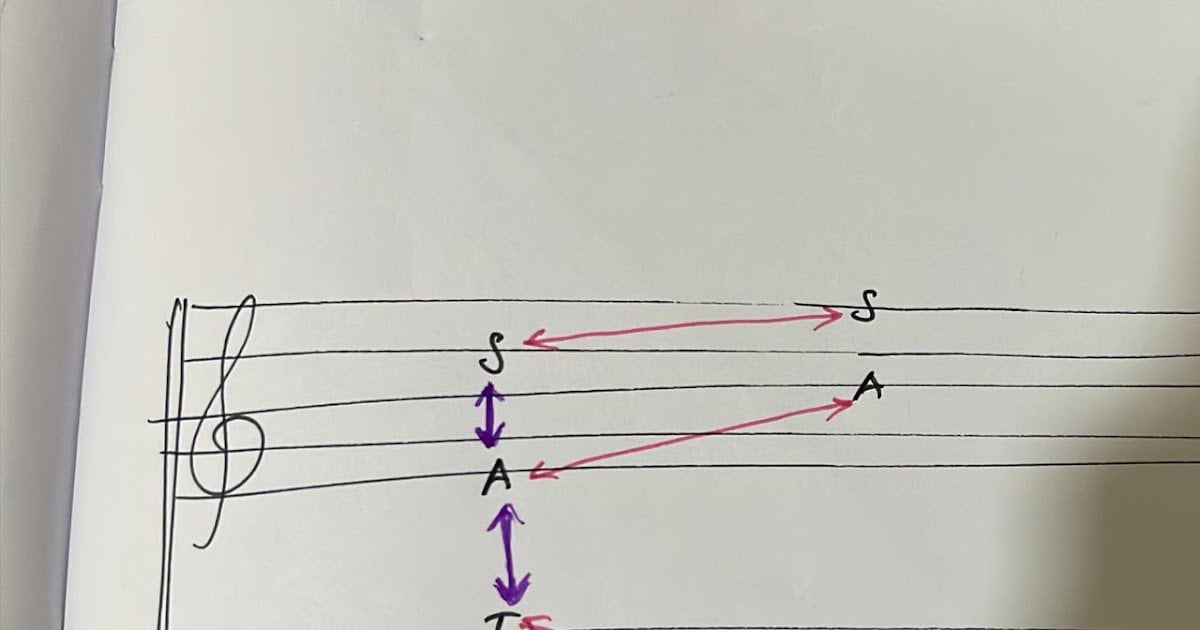 S S
A A
T